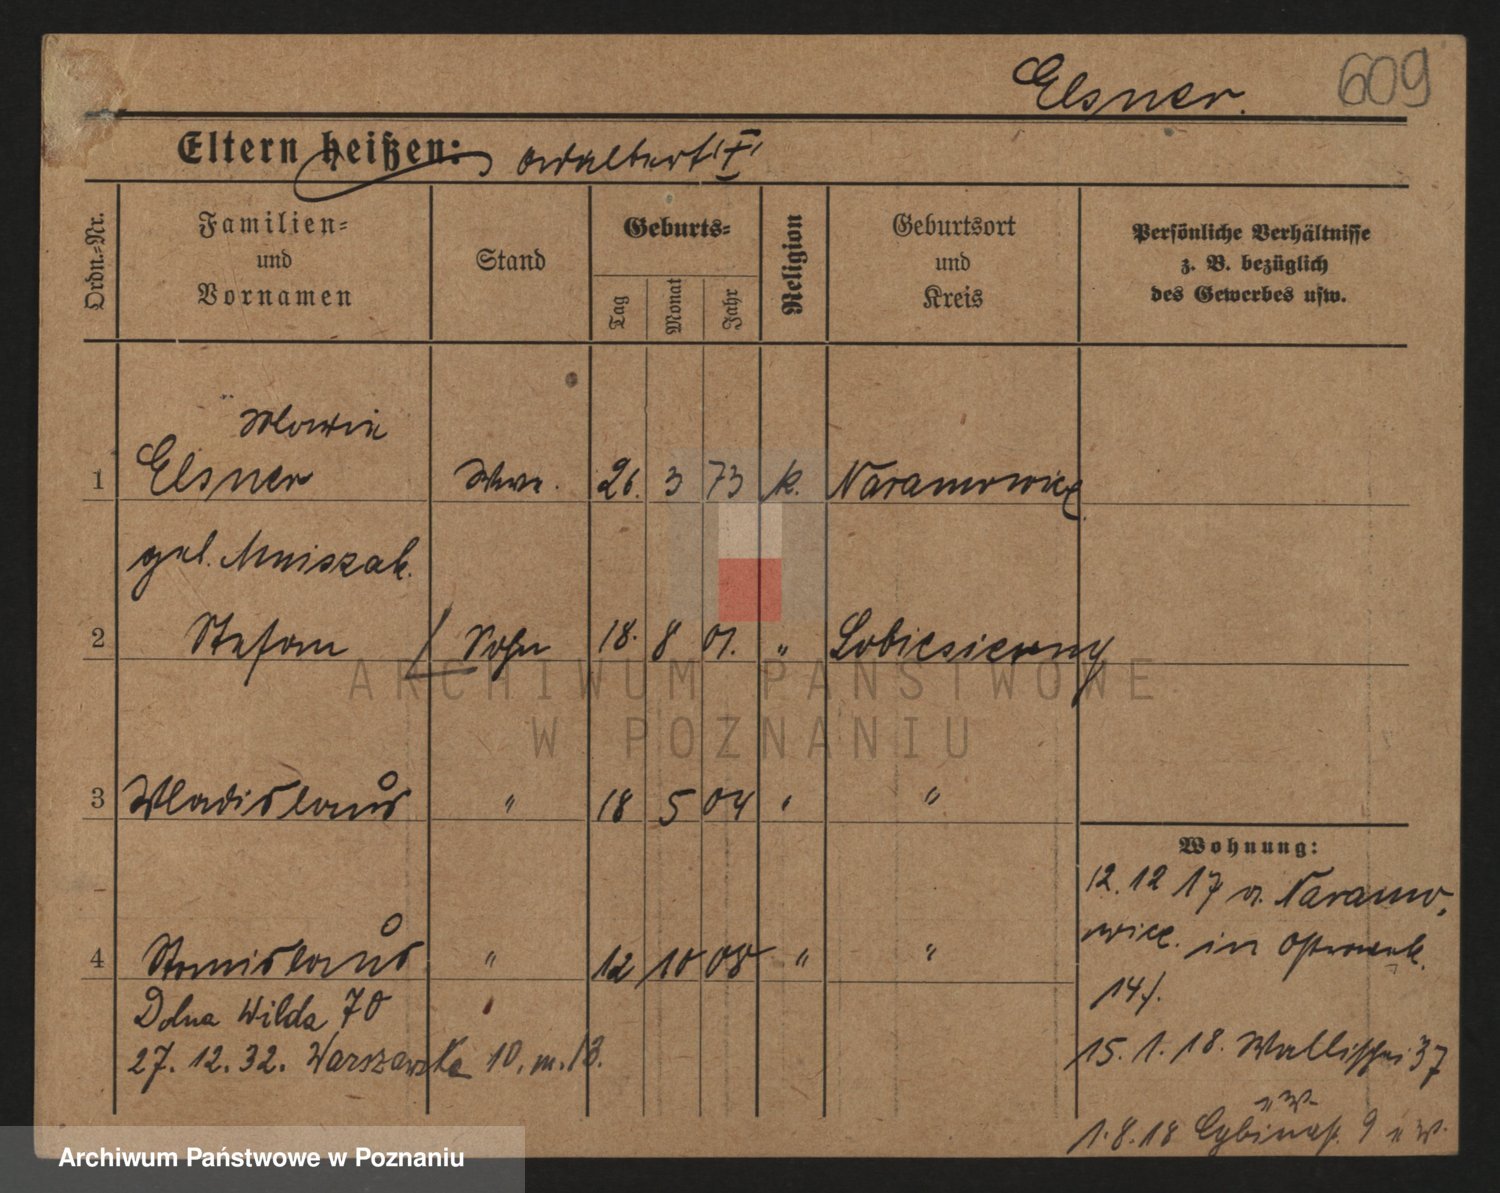 Elsner. 609
Eltern heißen:
Ordn.-Nr.
Familien=
und
Vornamen
Stand
Geburts=
Tag
Monat
Jahr
Religion
Geburtsort
und
Kreis
Persönliche Verhältnisse
z. B. bezüglich
des Gewerbes usw.
Maria
1 Elsner Wwe. 26. 3 73 k. Naramowice
geb. Mniszak.
2 Stefan Sohn 18. 8 01. "
3 Wladislaus " 18 5 04 " "
4 Stanislaus " 12 10 08 " "
Dolna Wilda 70
27. 12. 32. Warszawska 10. m. 13.
Wohnung:
12. 12 17 a. Naramo-
wice. in
14 I.
15. 1. 18. Wallischei 37
1. 8. 18 Cybinastr. 9
ARCHIWUM PAŃSTWOWE
W POZNANIU
Archiwum Państwowe w Poznaniu